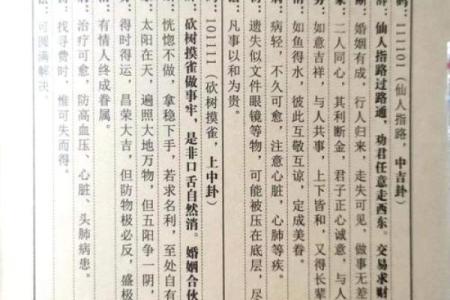 ：111101（仙人指路，中吉卦）
：仙人指路过路通，劝君任意走西东。交易求财
：婚姻有成，行人归来，走失可见，做事无差
：二人同心，其利断金，君子正心诚意，与人
：如意吉祥，与人共事，上下皆和，又得长辈
：如鱼得水，彼此互敬互谅，定成美眷。
：病轻，不久可愈，注意心脏，心肺等疾。
：遗失似文件眼镜等物，可能被压在底层，尽
：凡事以和为贵。
：101111（砍树摸雀，上中卦）
：砍树摸雀做事牢，是非口舌自然消。婚姻合伙
：恍惚不做，拿稳下手，若求名利，至处自有
：太阳在天，遍照大地万物，但五阳争一阴，
：得时得运，昌荣大吉，但防物极必反，盛极
：有情人终成眷属。
：治疗可愈，防高血压、心脏、头肺病患。
：找寻费时，惟可失而得。
：可圆满解决。